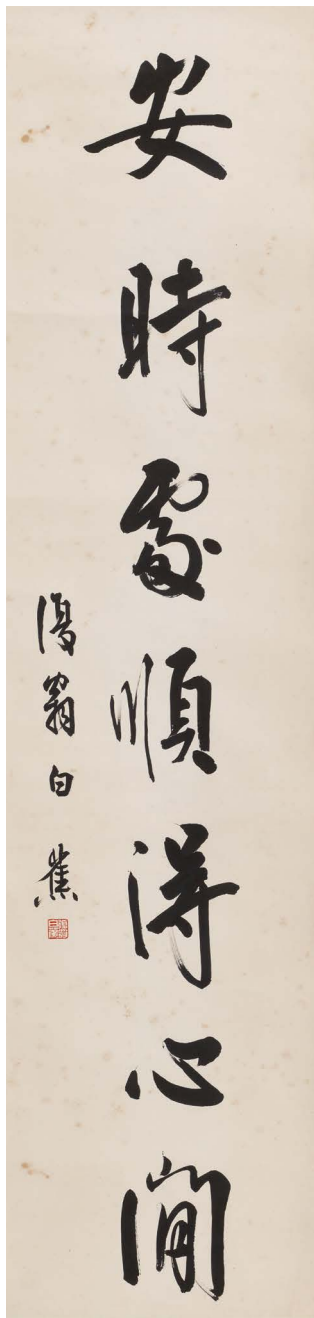 安時處順得心閒
復翁白蕉